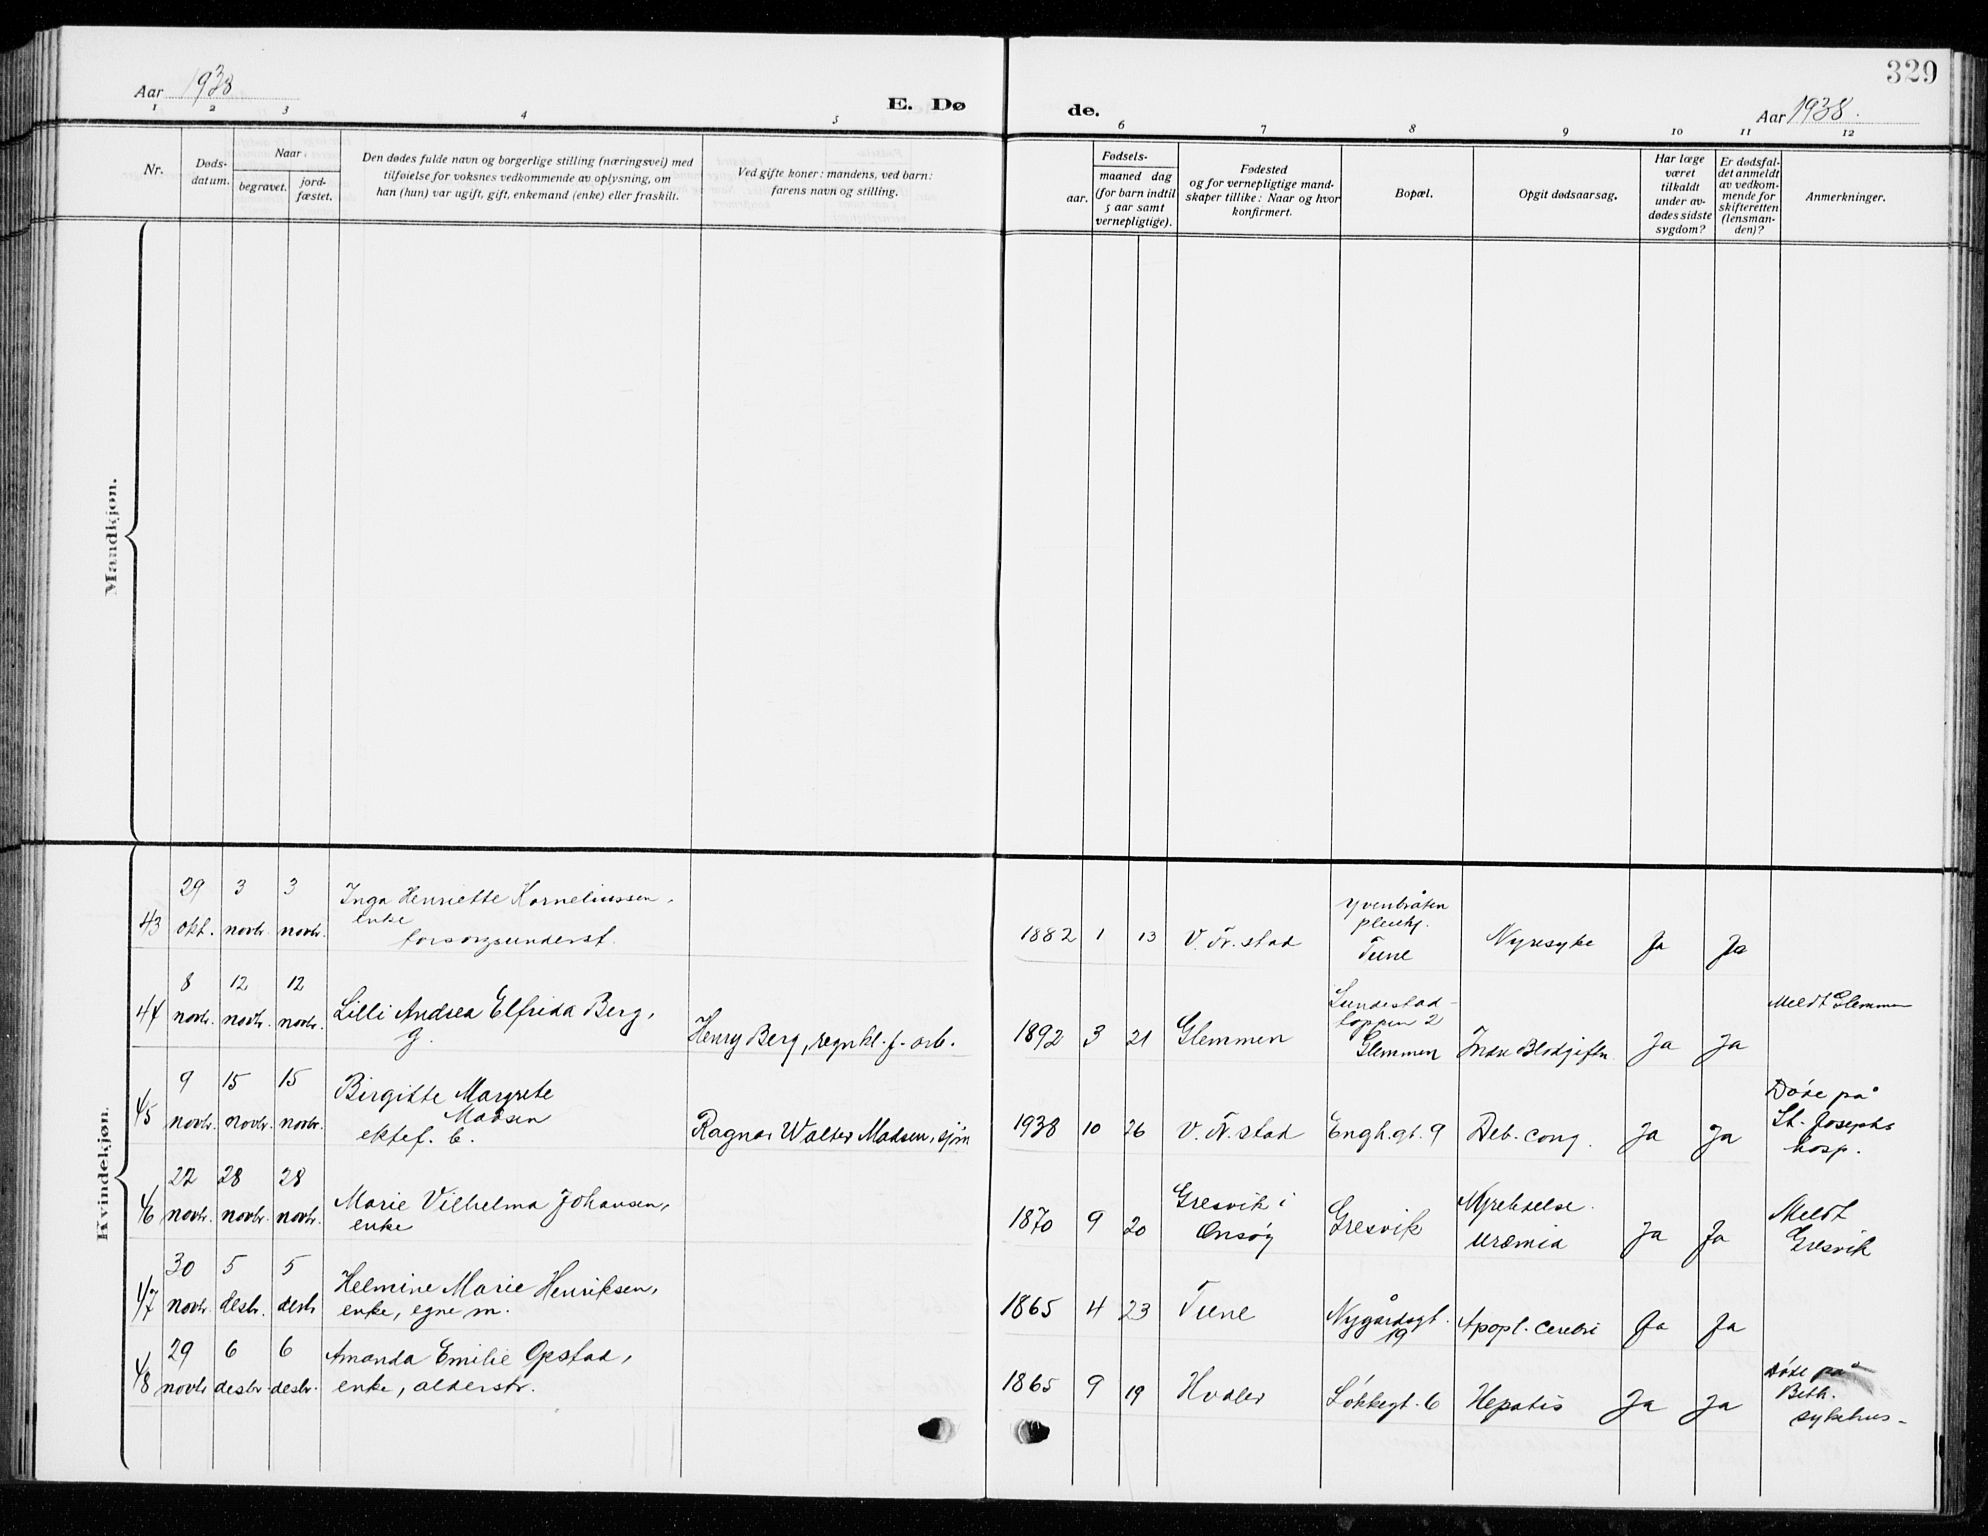 329
Aar 1938
E. Dø
de.
Aar 1938.
1 2 3 4 5 6 7 8 9 10 11 12
Nr.
Døds-
datum.
Naar
begravet.
jord-
fæstet.
Den dødes fulde navn og borgerlige stilling (næringsvei) med
tilføielse for voksnes vedkommende av oplysning, om
han (hun) var ugift, gift, enkemand (enke) eller fraskilt.
Ved gifte koner: mandens, ved barn:
farens navn og stilling.
aar.
Fødsels-
maaned dag
(for barn indtil
5 aar samt
vernepligtige).
Fødested
og for vernepligtige mand-
skaper tillike: Naar og hvor
konfirmert.
Bopæl.
Opgit dødsaarsag.
Har læge
været
tilkaldt
under av-
dødes sidste
sygdom?
Er dødsfal-
det anmeldt
av vedkom-
mende for
skifteretten
(lensman-
den)?
Anmerkninger.
Mandkjøn.
Kvindekjøn.
43
29 3 3
okt. novbr. novbr.
Inga Henriette Korneliussen,
enke
forsorgsunderst.
1882 1 13
V. Fr. stad
Yvenbråten
pleiehj.
Tune
Nyresyke
Ja Ja
44
8 12 12
novbr. novbr. novbr.
Lilli Andrea Elfrida Berg,
g.
Henry Berg, regnkl. f. arb.
1892 3 21
Glemmen
Lundestad-
loppen 2
Glemmen
Indre Blodgiftn.
Ja Ja
Meldt Glemmen
45
9 15 15
novbr. novbr. novbr.
Birgitte Margrete
Madsen
ektef. b.
Ragnar Walter Madsen, sjm
1938 10 26
V. Fr. stad
Engh.gt. 9
Deb. cong.
Ja Ja
Døde på
St. Josephs
hosp.
46
22 28 28
novbr. novbr. novbr.
Marie Vilhelma Johansen,
enke
1870 9 20
Gresvik i
Onsøy
Gresvik
uræmia
Ja Ja
Meldt
Gresvik
47
30 5 5
novbr. desbr. desbr
Helmine Marie Henriksen,
enke, egne m.
1865 4 23
Tune
Nygårdsgt.
19
Apopl. cerebri
Ja Ja
48
29 6 6
novbr desbr. desbr.
Amanda Emilie Opstad,
enke, alderstr.
1865 9 19
Hvaler
Løkkegt. 6
Hepatis
Ja Ja
Døde på
Beth.
sykehus-